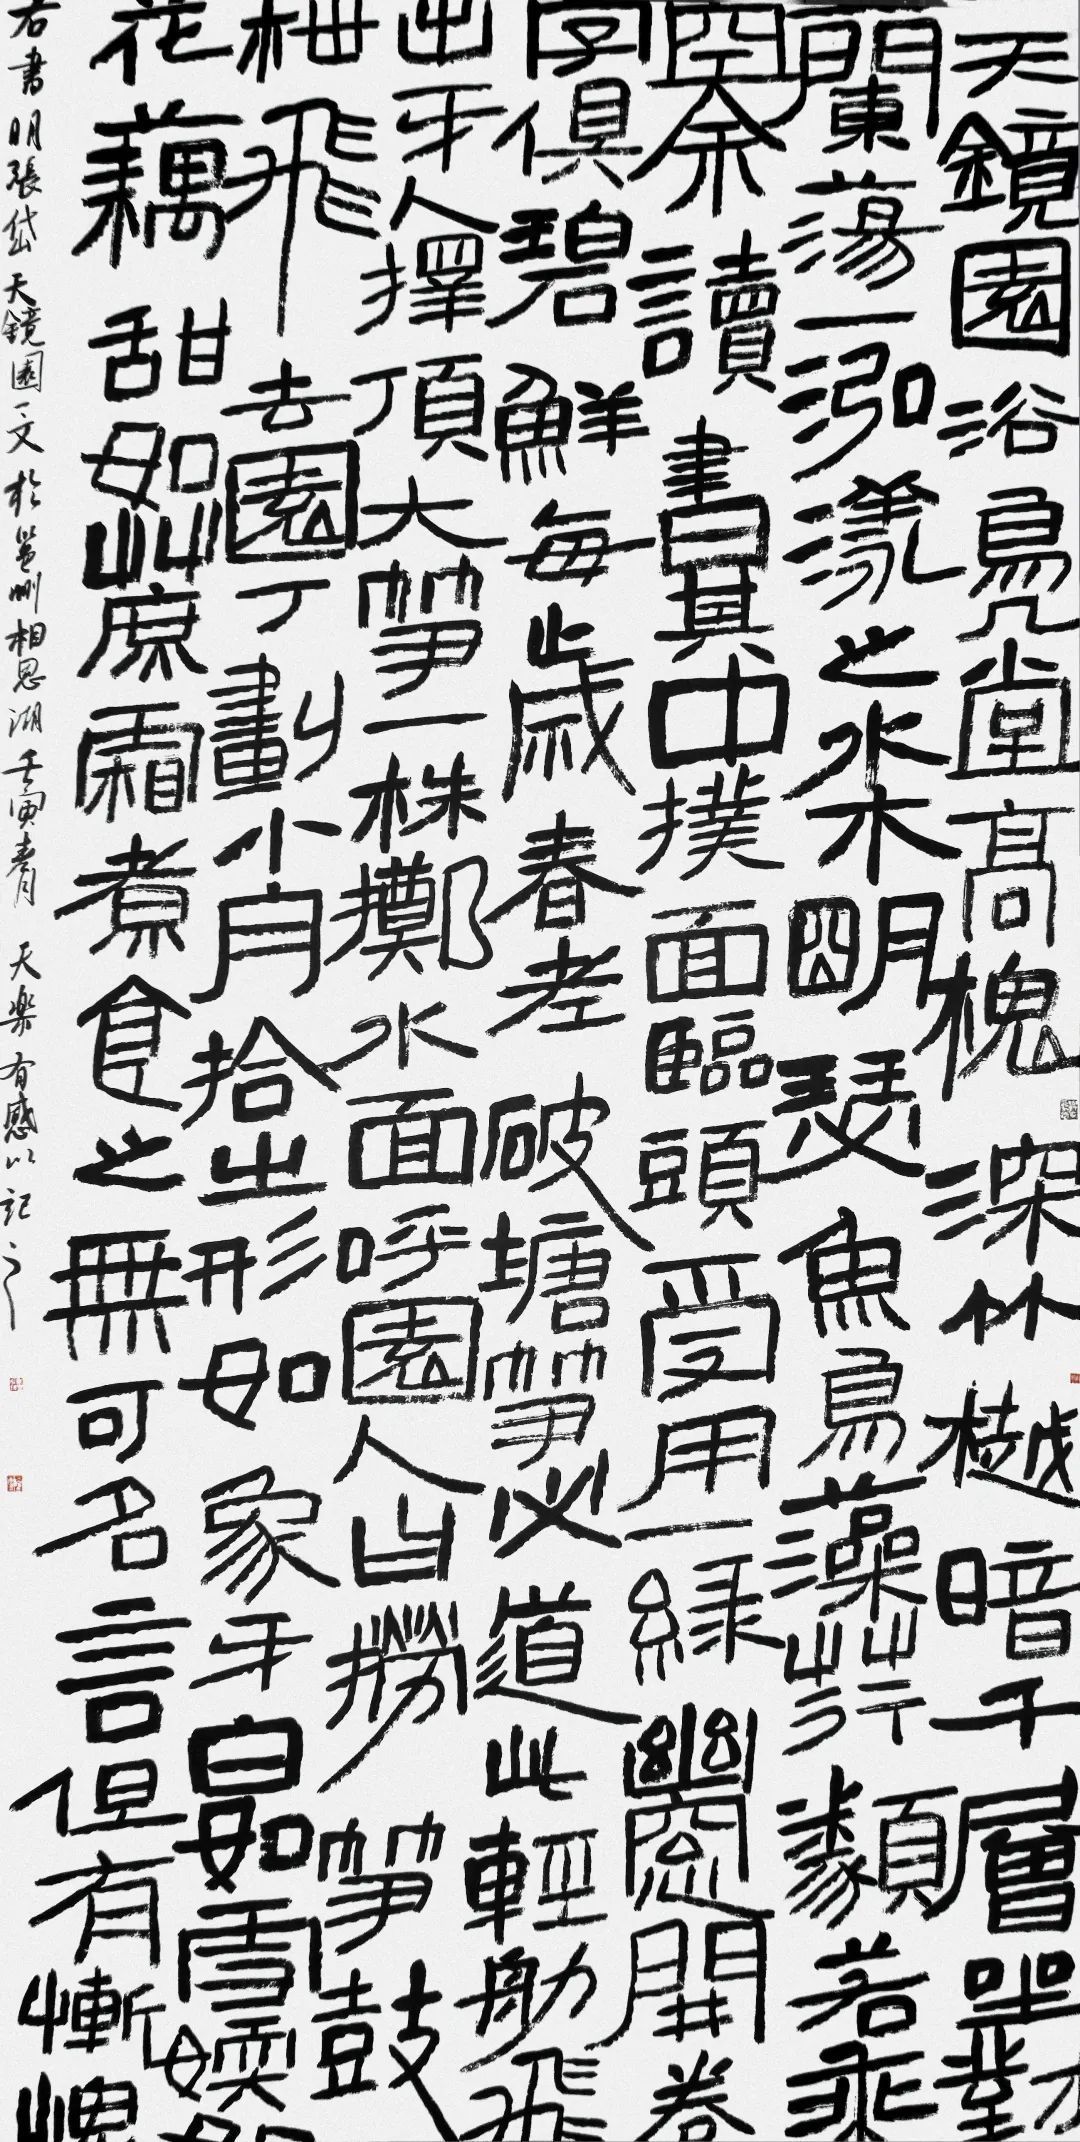 天鏡園浴鳧堂高槐深竹樾暗千層坐對
蘭蕩一泓漾之水木明瑟魚鳥藻荇類若乘
空余讀書其中撲面臨頭受用一綠幽窗開卷
字俱碧鮮每歲春老破塘筍必道此輕舠飛
出牙人擇頂大筍一株擲水面呼園人曰撈筍鼓
枻飛去園丁劃小舟拾之形如象牙白如雪嫩如
花藕甜如蔗霜煮食之無可名言但有慚愧
右書明張岱天鏡園一文於邕州相思湖壬寅春月 天樂有感以記之